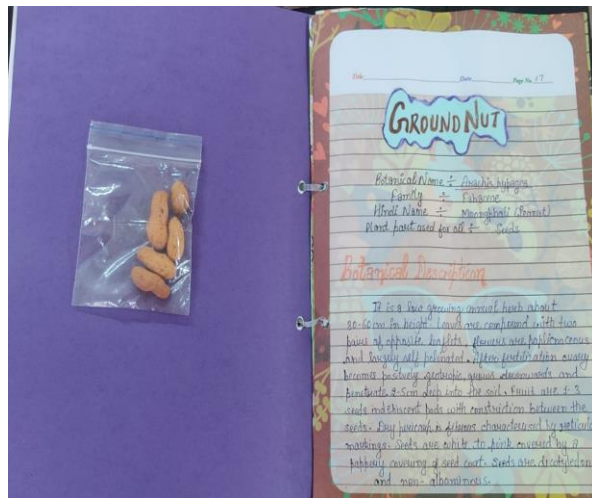 Date
Page No. 17
GROUND NUT
Botanical Name ÷ Arachis hypogea
Family ÷ Fabaceae
Hindi Name ÷ Moongphali (Peanut)
Plant part used for oil ÷ Seeds
Botanical Description
It is a low growing annual herb about
30-60 cm in height. Leaves are compound with two
pairs of opposite leaflets. flowers are papilionaceous
and largely self polinated. After fertilization ovary
becomes positively geotropic, grows downwards and
penetrate 2-5cm deep into the soil. Fruit are 1-3
seeds indehiscent pods with constriction between the
seeds. Dry pericarp is fibrous characterised by reticulate
markings. Seeds are white to pink covered by a
pappery covering of seed coat. Seeds are dicotyledon
and non-albuminous.